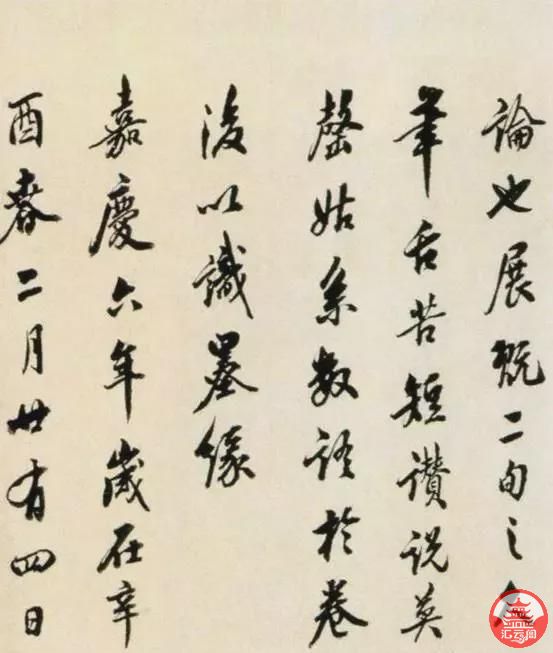 論也展翫二旬之
筆舌苦短讚說莫
罄姑系數語於卷
後以識墨緣
嘉慶六年歲在辛
酉春二月廿有四日
汇云阁